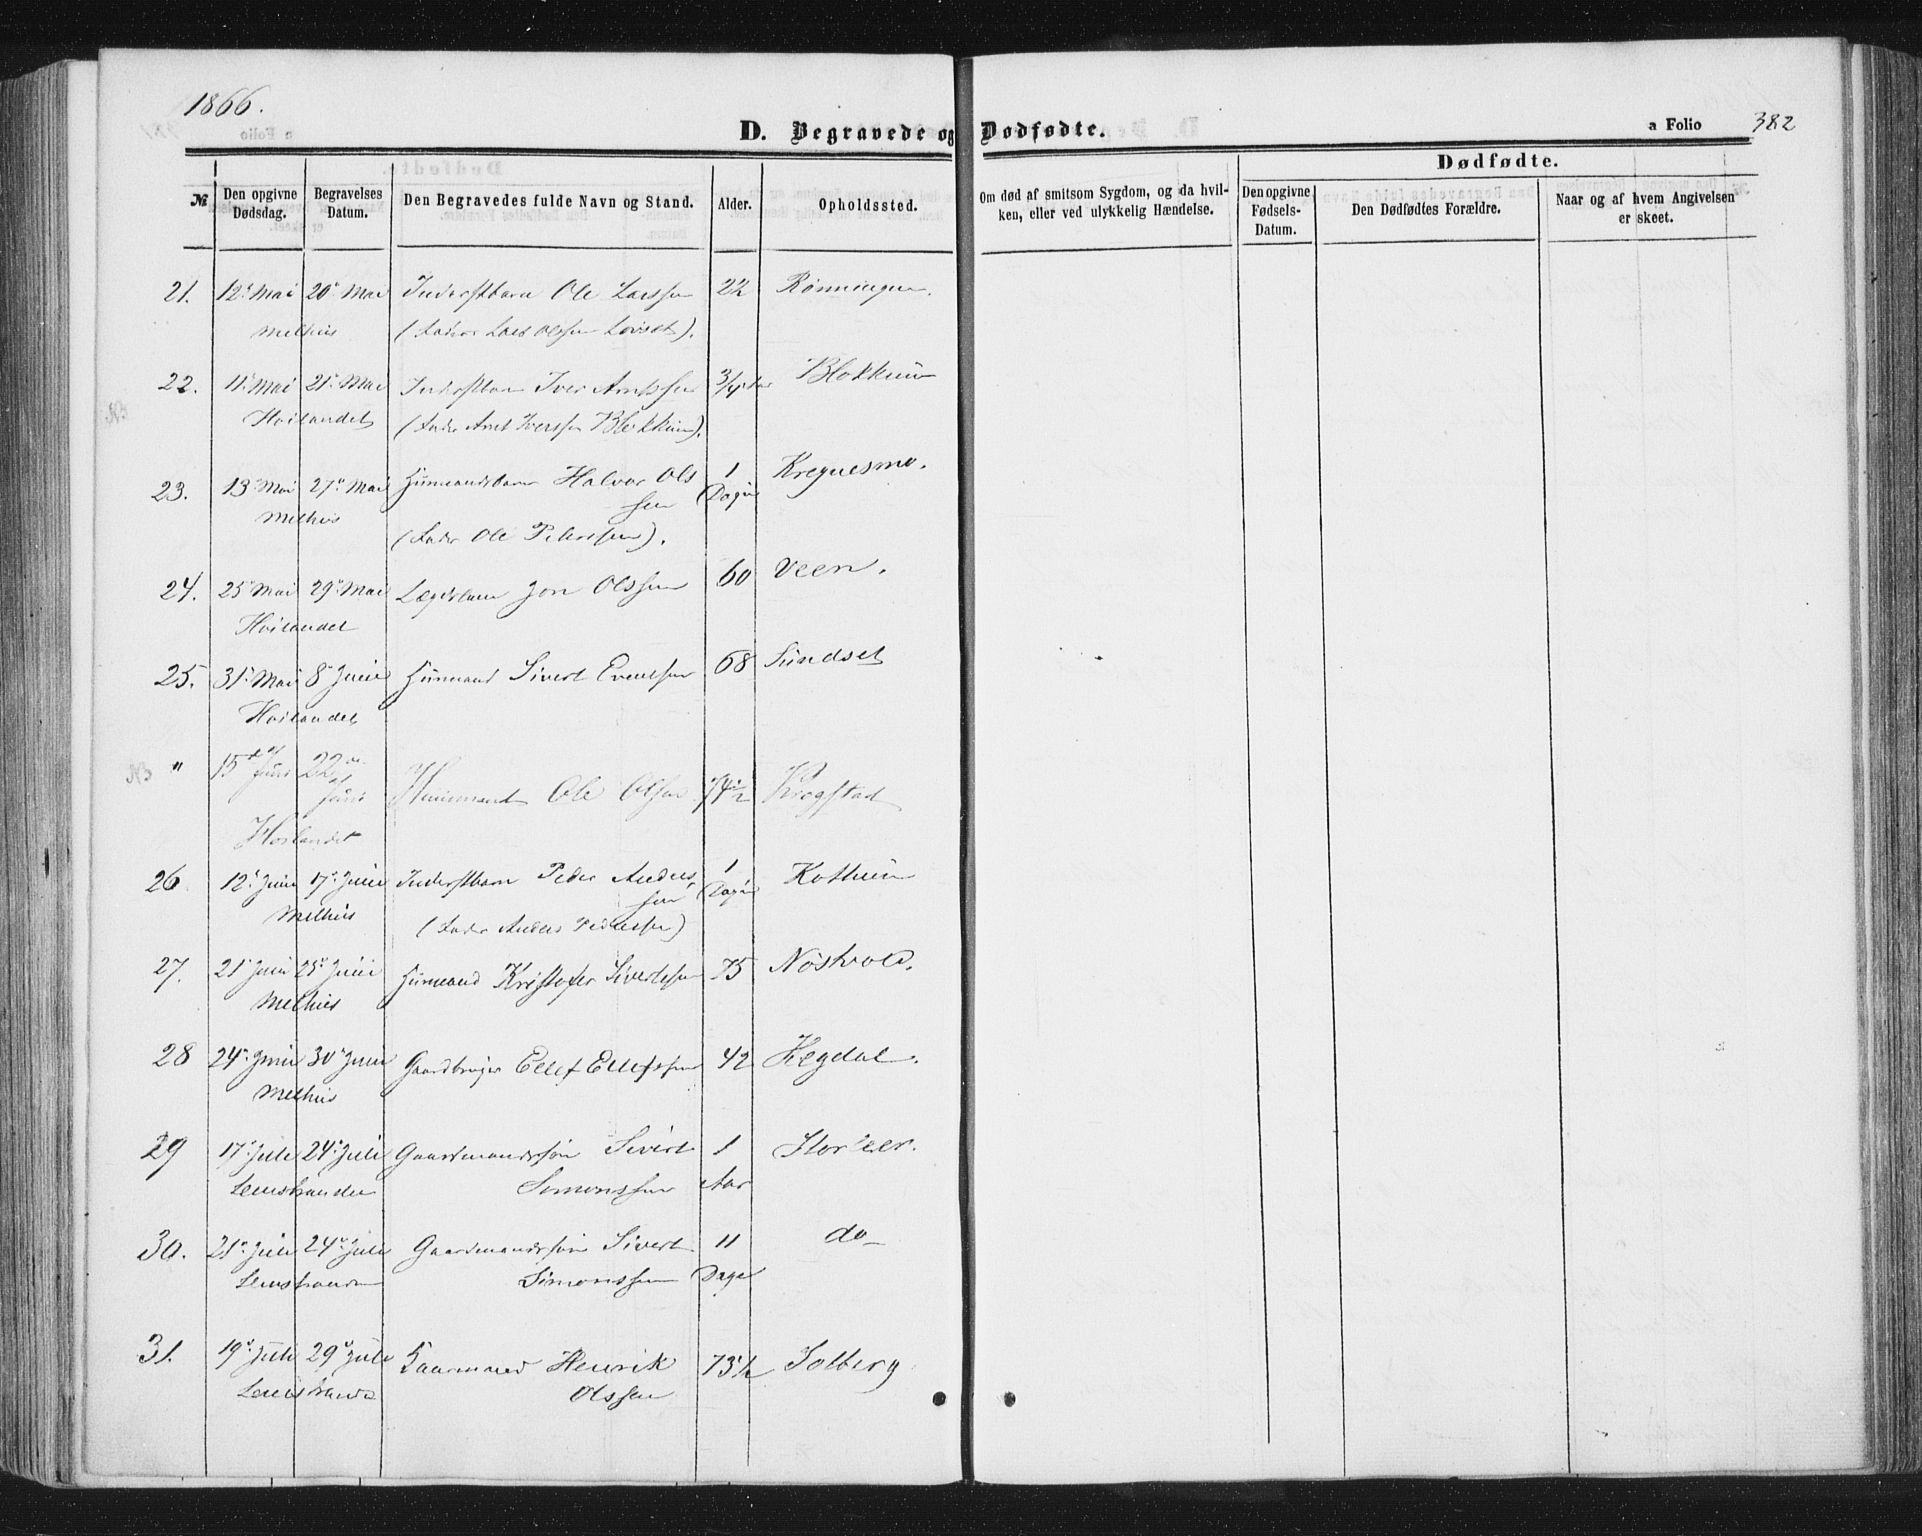 1866.
D. Begravede og Dødfødte.
a Folio 382
Dødfødte.
№
Den opgivne Dødsdag.
Begravelses Datum.
Den Begravedes fulde Navn og Stand.
Alder.
Opholdssted.
Om død af smitsom Sygdom, og da hvilken, eller ved ulykkelig Hændelse.
Den opgivne Fødsels-Datum.
Den Dødfødtes Forældre.
Naar og af hvem Angivelsen er skeet.
21. 12te Mai 20de Mai Inderstbarn Ole Larssen 22 Rønningen.
Melhus (Fader Lars Olssen Løvset).
22. 11te Mai 21de Mai Inderstbarn Iver Arntssen 3/4 Aar Blokkum
NB Høilandet (Fader Arnt Iverssen Blekkum).
23. 13de Mai 27de Mai Huusmandsbarn Halvor Ols 1 Kregnesmo.
Melhus sen Dage
(Fader Ole Peterssen).
24. 25de Mai 29de Mai Lægdslem Jon Olssen 60 Veen.
Høilandet
25. 31te Mai 8de Juni Huusmand Sivert Evensen 68 Sundset
Høilandet
NB " 15de Juni 22de Juni Huusmand Ole Olsen 74 1/2 Krogstad
Høilandet
26 12te Juni 17de Juni Inderstbarn Peder Anders 1 Kothum
Melhus sen Dage
(Fader Anders Pederssen)
27. 21de Juni 25de Juni Huusmand Kristofer Sivertssen 75 Nøstvold.
Melhus
28 24de Juni 30de Juni Gaardbruger Ellef Ellefssen 42 Hegdal.
Melhus
29 17de Juli 24de Juli Gaardmandssøn Sivert 1
Leinstranden Simonssen Aar
30. 21de Juli 24de Juli Gaardmandssøn Sivert 11 do
Leinstranden Simonssen Dage
31. 19de Juli 29de Juli Kaarmand Henrik 73 1/2 Solberg
Leinstranden Olssen